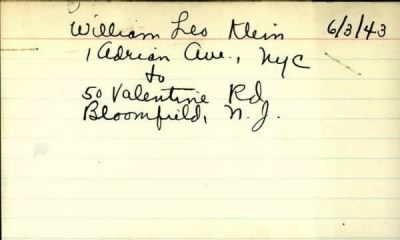 William Leo Klein 6/3/43
1 Adrian Ave., NYC
to
50 Valentine Rd
Bloomfield, N.J.